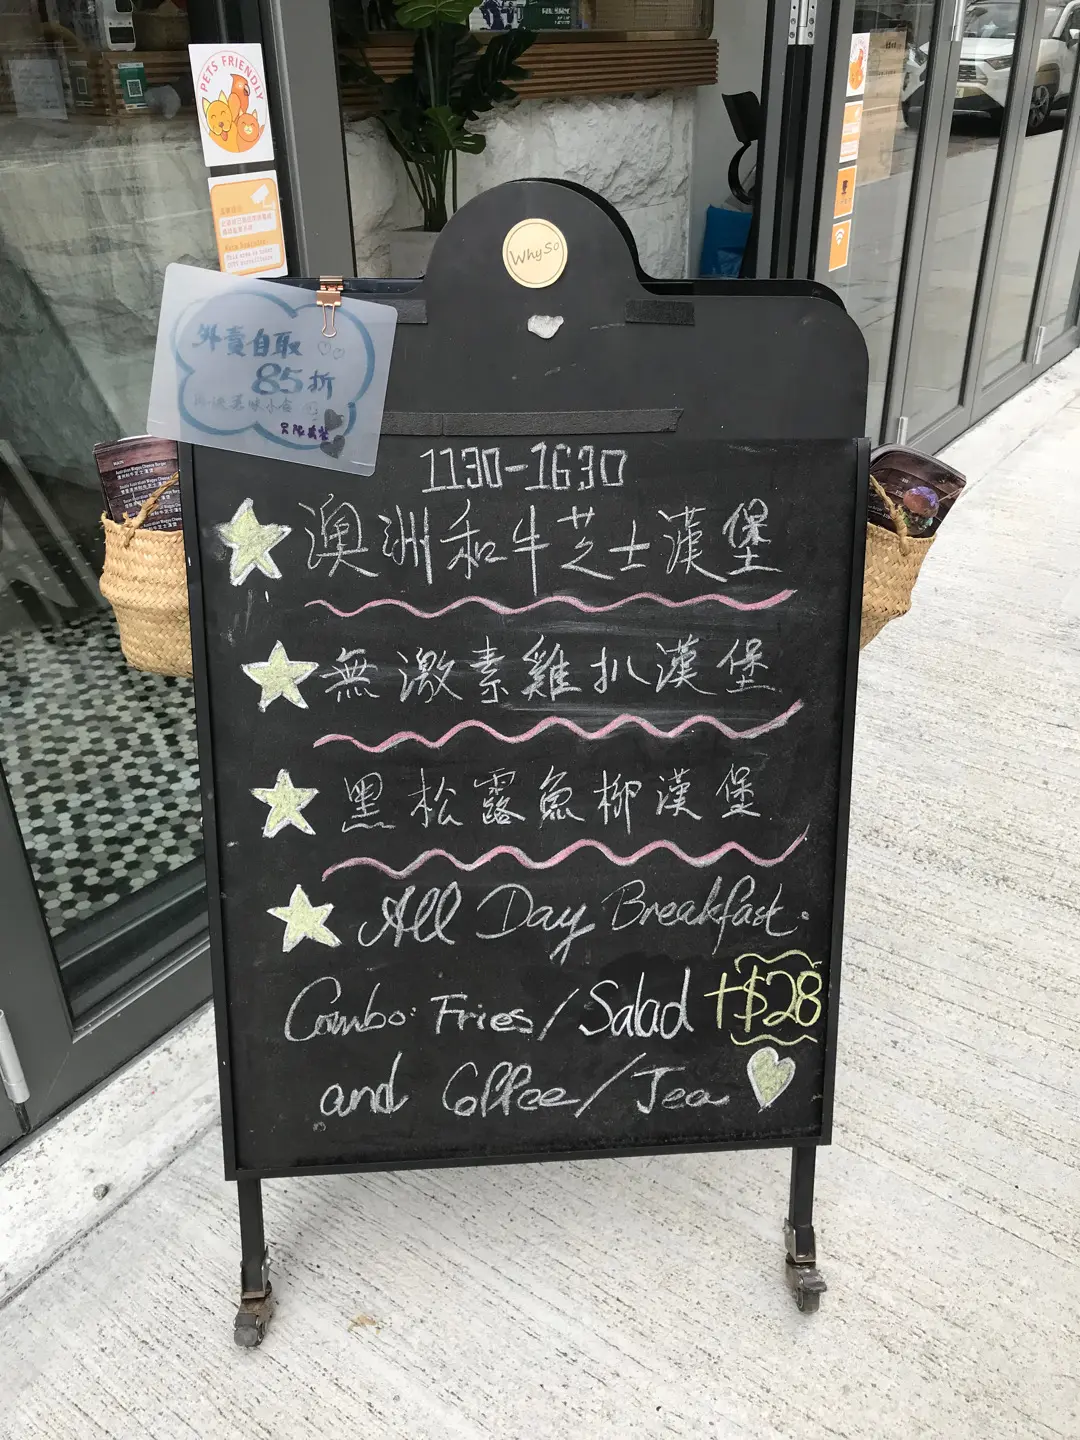 PETS FRIENDLY
WhySo
外賣自取
85折
1130-1630
澳洲和牛芝士漢堡
無激素雞扒漢堡
黑松露魚柳漢堡
All Day Breakfast.
Combo: Fries/Salad +$28
and Coffee/Tea